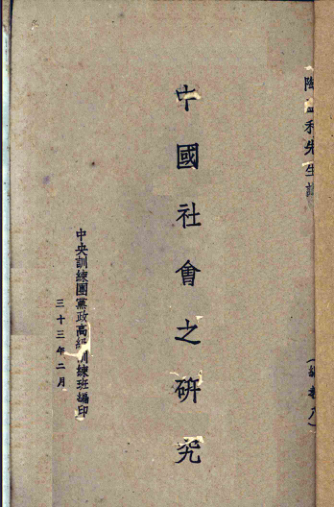 陶孟和先生講
中國社會之研究
中央訓練團黨政高級訓練班編印
三十三年二月